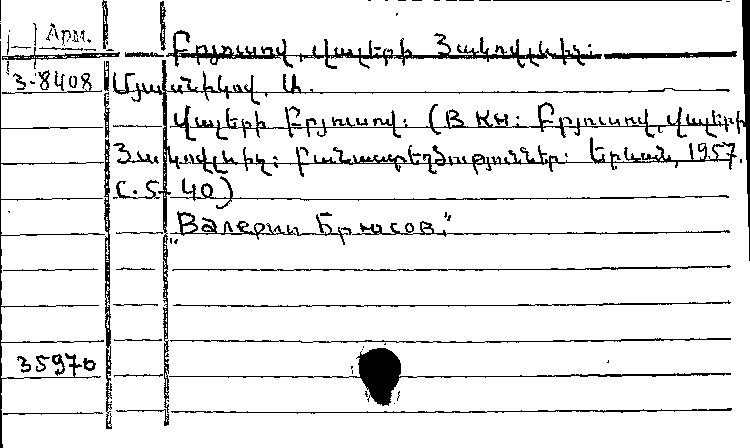 Арм.
Բրյուսով, Վալերի Յակովլևիչ:
3-8408 Մյասնիկով, Ա.
Վալերի Բրյուսով: (В кн: Բրյուսով, Վալերի
Յակովլևիչ: Բանաստեղծություններ: Երևան, 1957.
с. 5-40)
"Валерий Брюсов."
35970